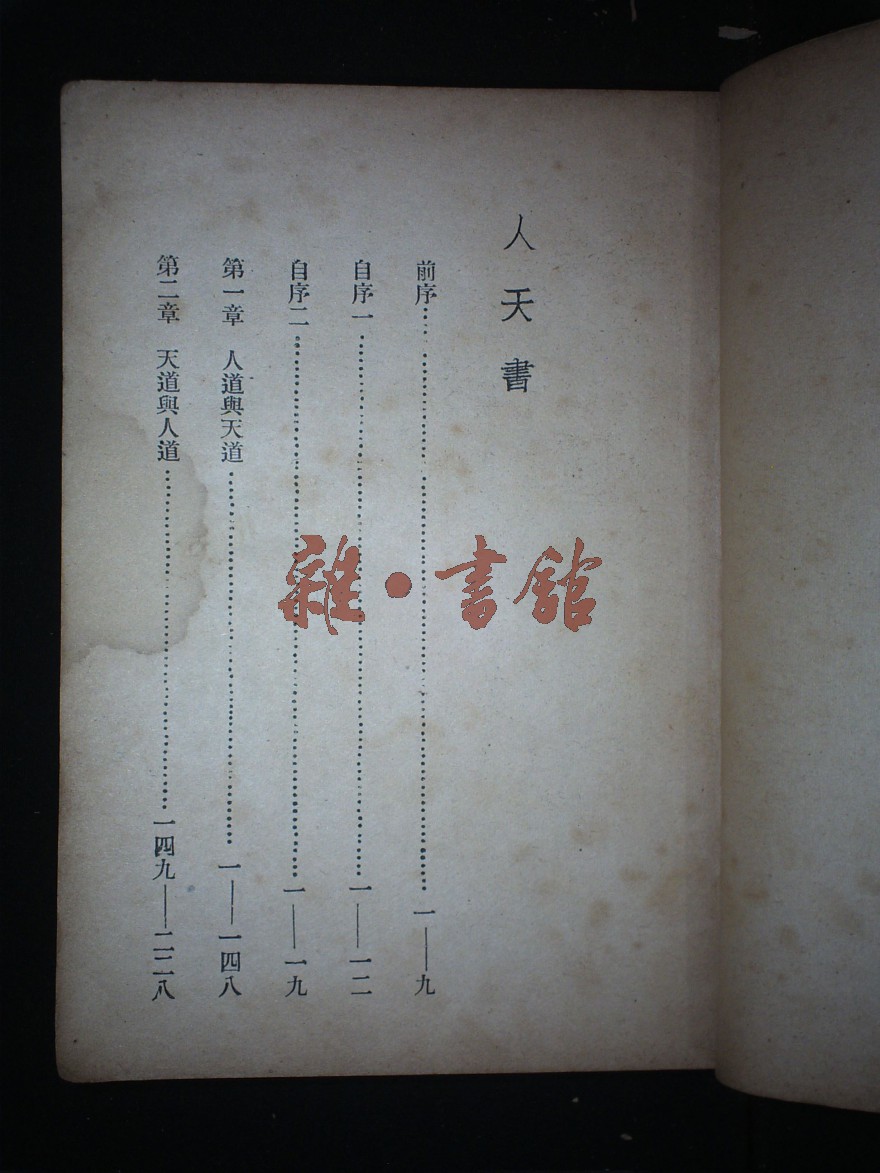 人天書
前序……一——九
自序一……一——一二
自序二……一——一九
第一章 人道與天道……一——一四八
第二章 天道與人道……一四九——二二八
雜·書館